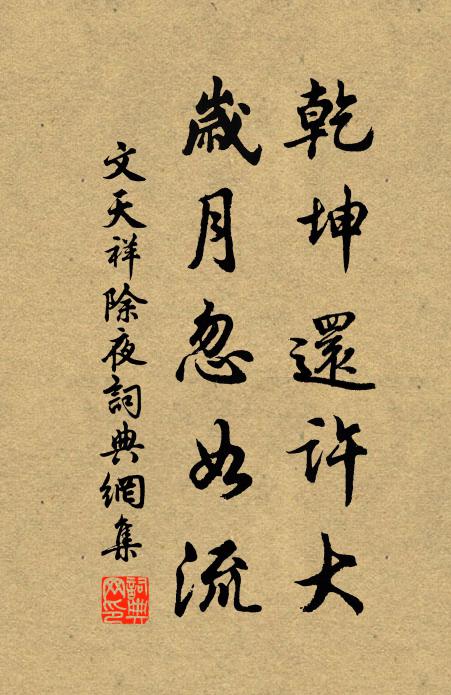 乾坤還許大
歲月忽如流
文天祥除夜詞典網集
詞典网印